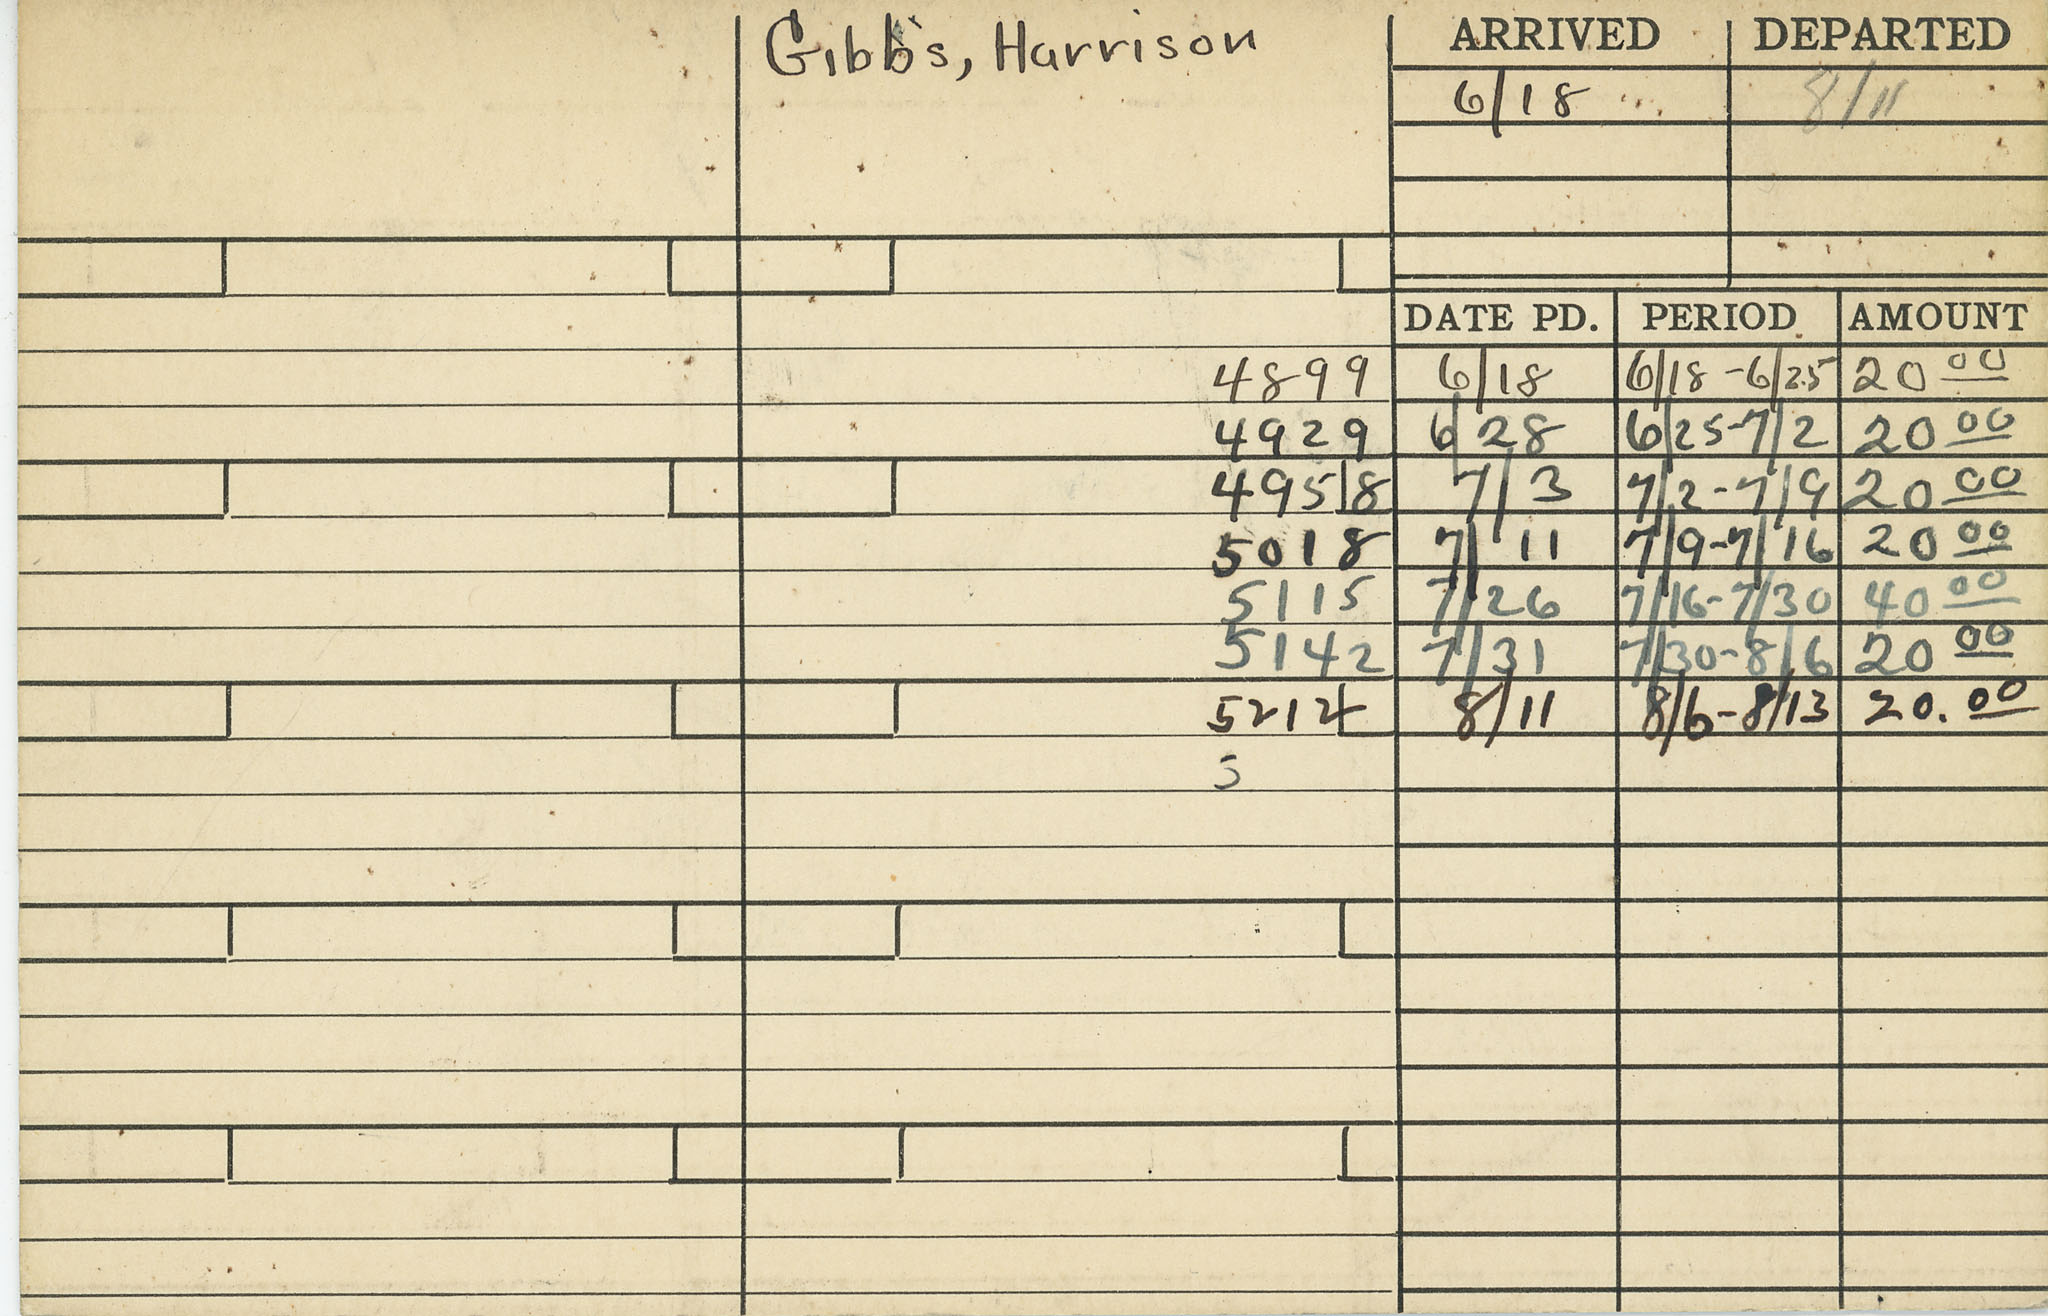 Gibbs, Harrison
ARRIVED DEPARTED
6/18 8/11
DATE PD. PERIOD AMOUNT
4899 6/18 6/18-6/25 20 00
4929 6/28 6/25-7/2 20 00
4958 7/3 7/2-7/9 20 00
5018 7/11 7/9-7/16 20 00
5115 7/26 7/16-7/30 40 00
5142 7/31 7/30-8/6 20 00
5212 8/11 8/6-8/13 20.00
5